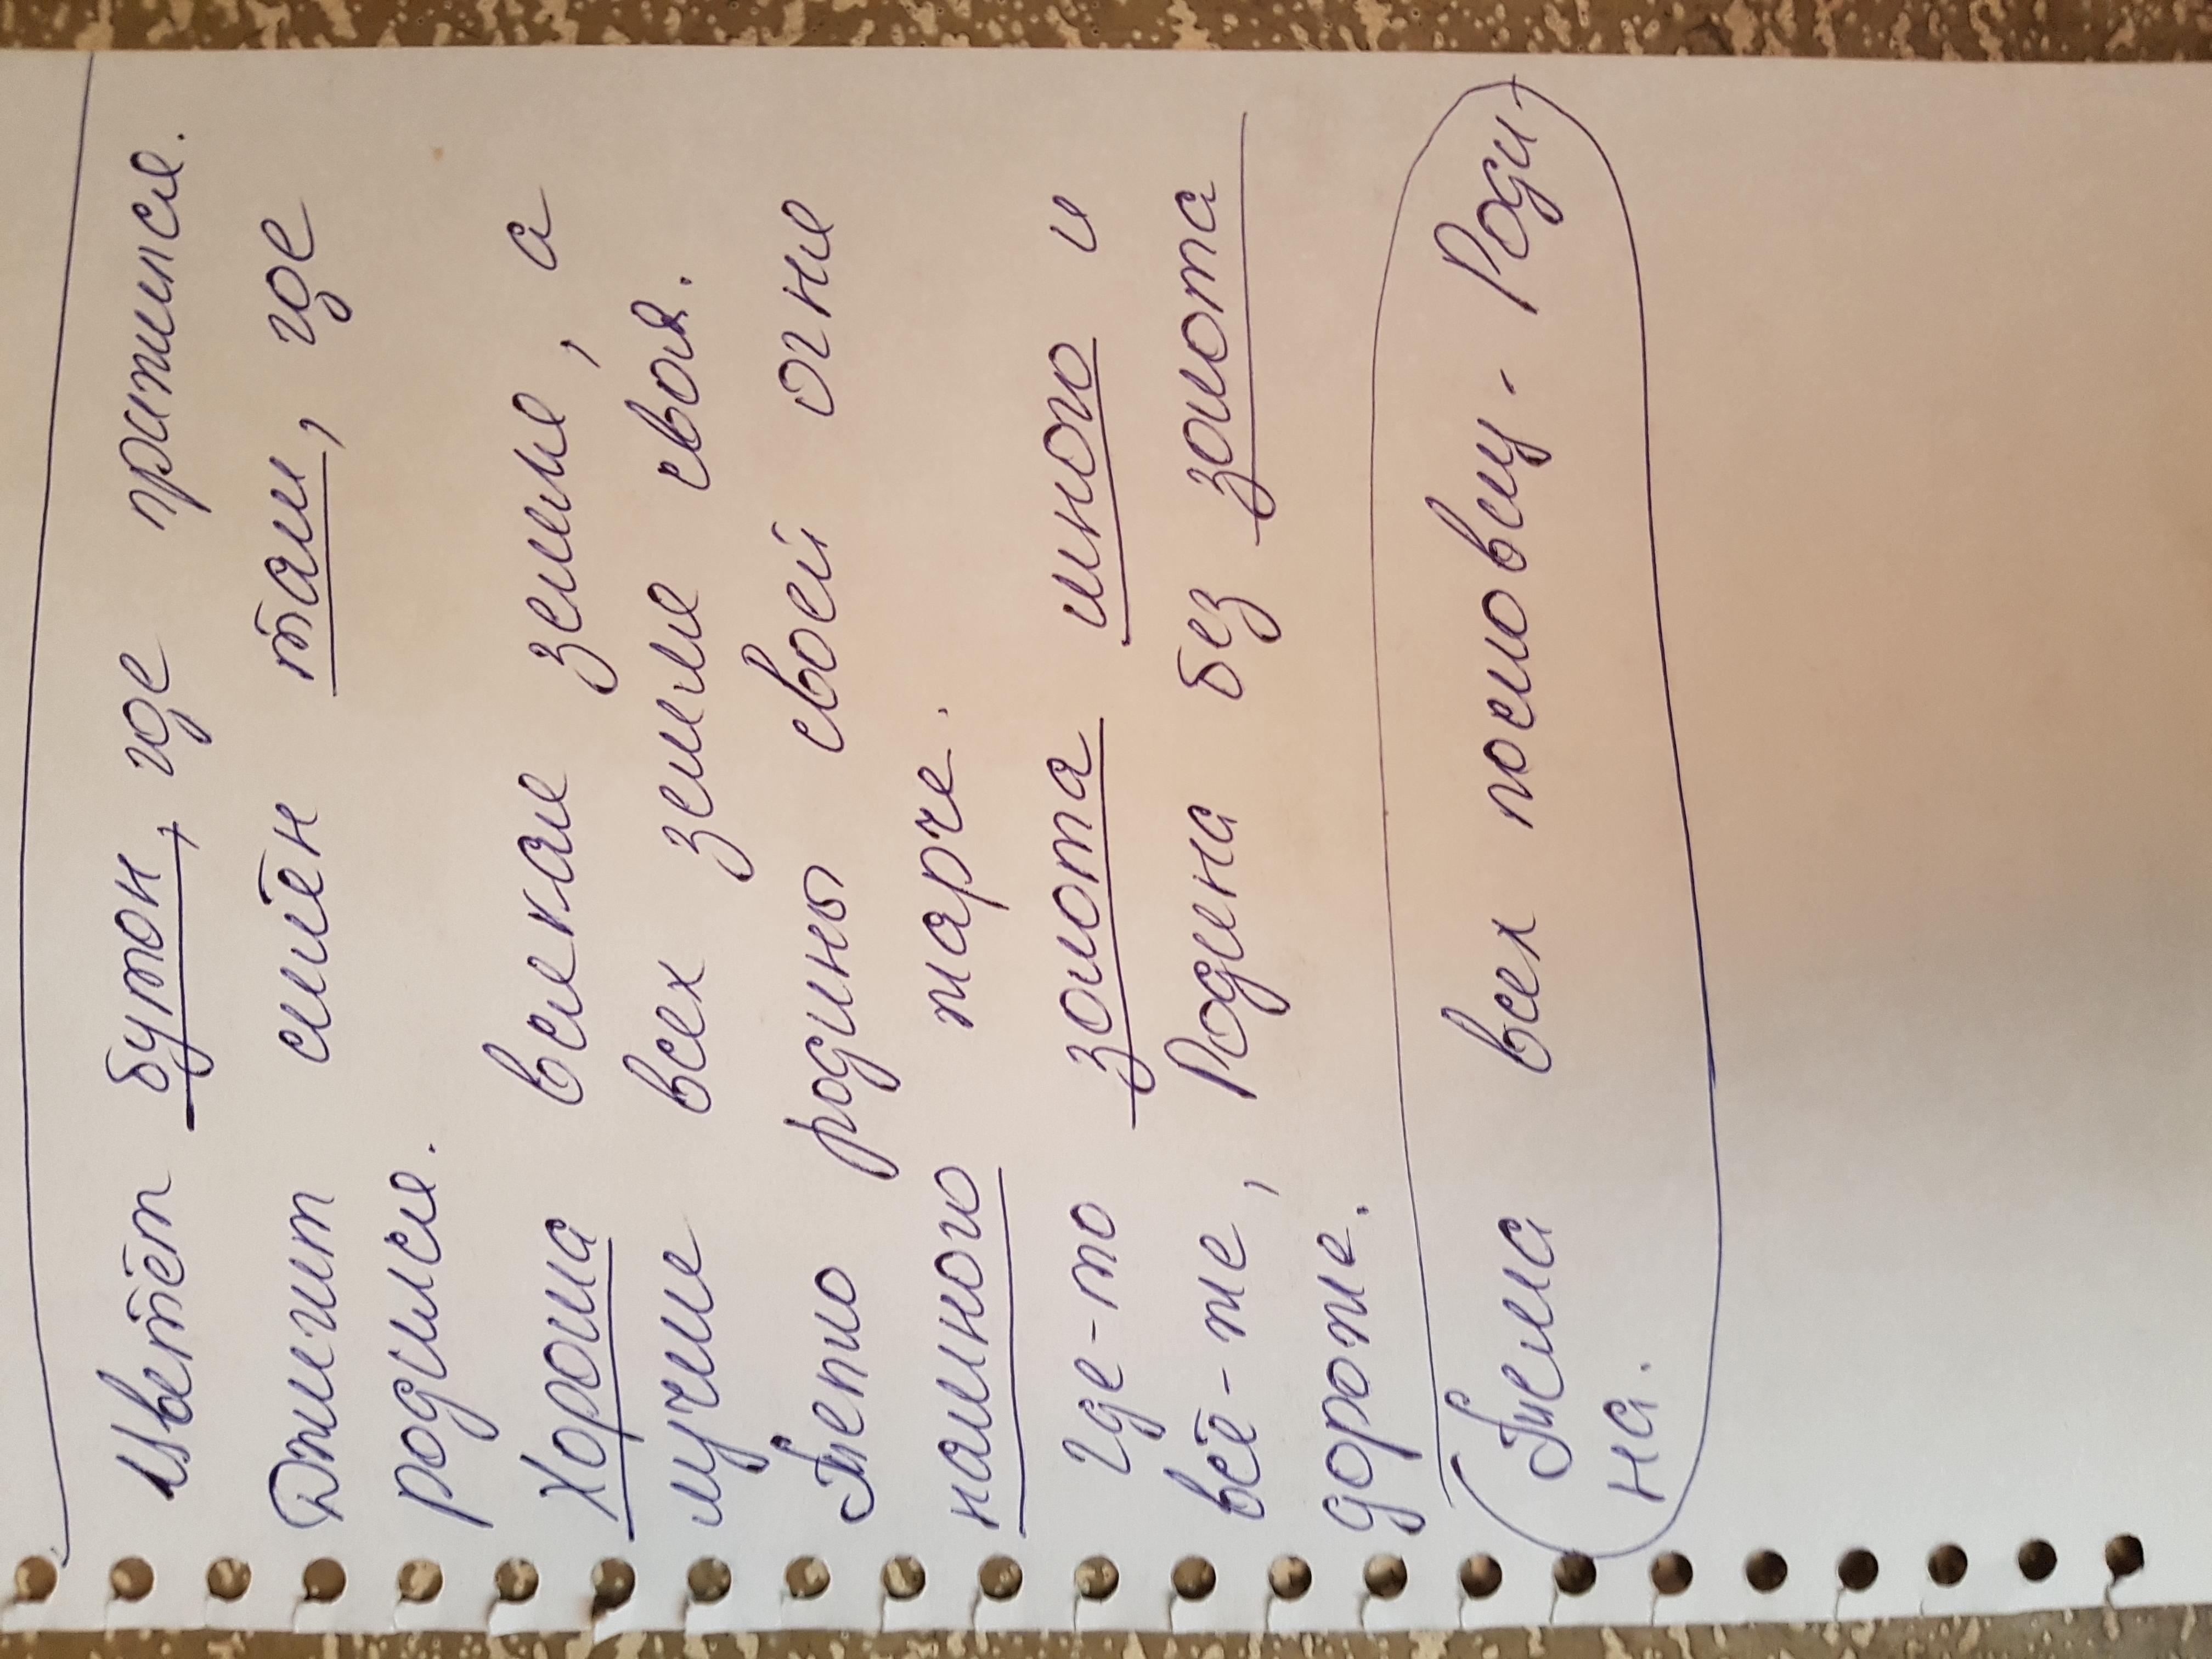 Цветёт бутон, где прижился.
Джигит силён там, где
родился.
Хороша всякая земля, а
лучше всех земля своя.
Тепло родины своей огня
намного жарче.
Где-то золота много и
всё-же, Родина без золота
дороже.
Тема всех пословиц - Роди
на.